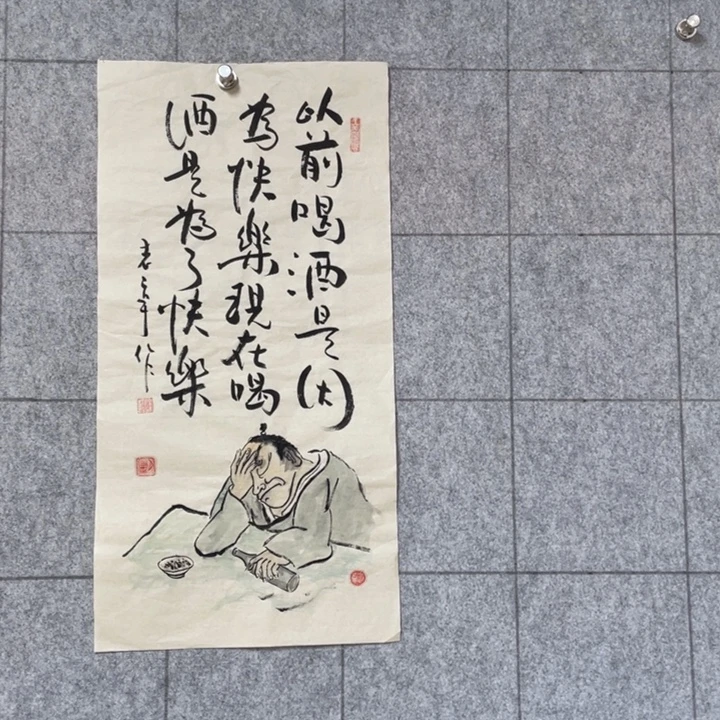 以前喝酒是因
為快樂現在喝
酒是為了快樂